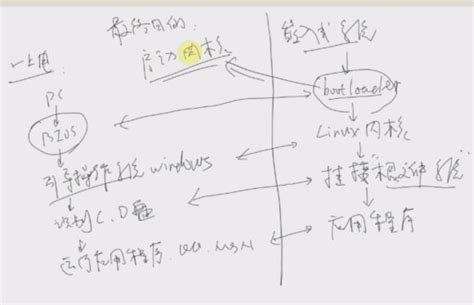 最终目的:
启动内核
一上电
PC
BIOS
引导操作系统 windows
识别C.D盘
运行应用程序. QQ. MSN
嵌入式系统
bootloader
Linux内核
挂接"根文件系统"
应用程序